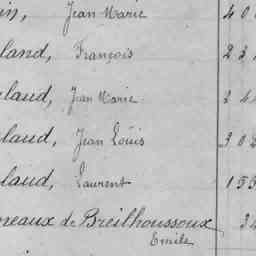 in, Jean Marie 40
land, François 23
laud, Jean Marie 24
laud, Jean Louis 302
laud, Laurent 155
neaux de Breilhoussoux 34
Emile